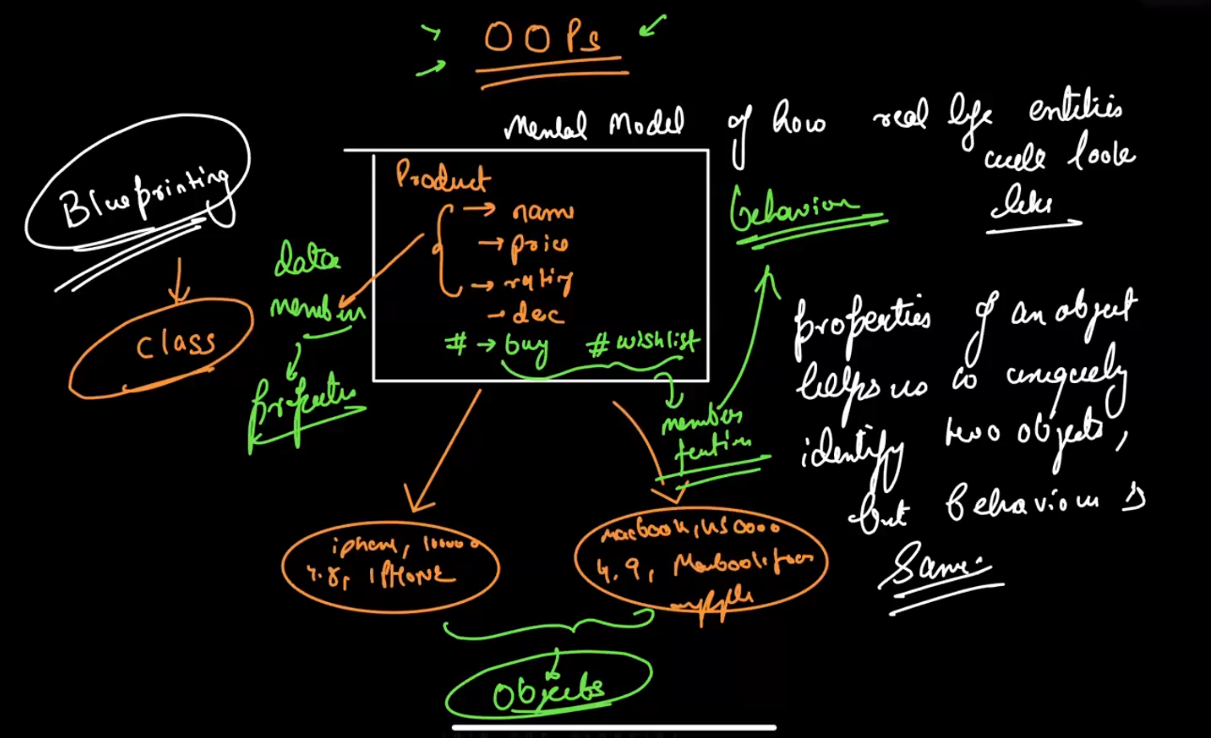 OOPs
Mental Model of how real life entities
will look
like
Blueprinting
class
Product
→ name
→ price
→ rating
→ dec
# → buy # wishlist
data
member
properties
behaviour
member
function
properties of an object
helps us to uniquely
identify two objects,
but behaviour is
same.
iphone, 100000
4.8, IPHONE
macbook,
4.9, Macbook from
apple
Objects